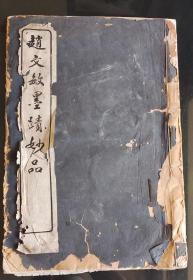 趙文敏墨蹟妙品